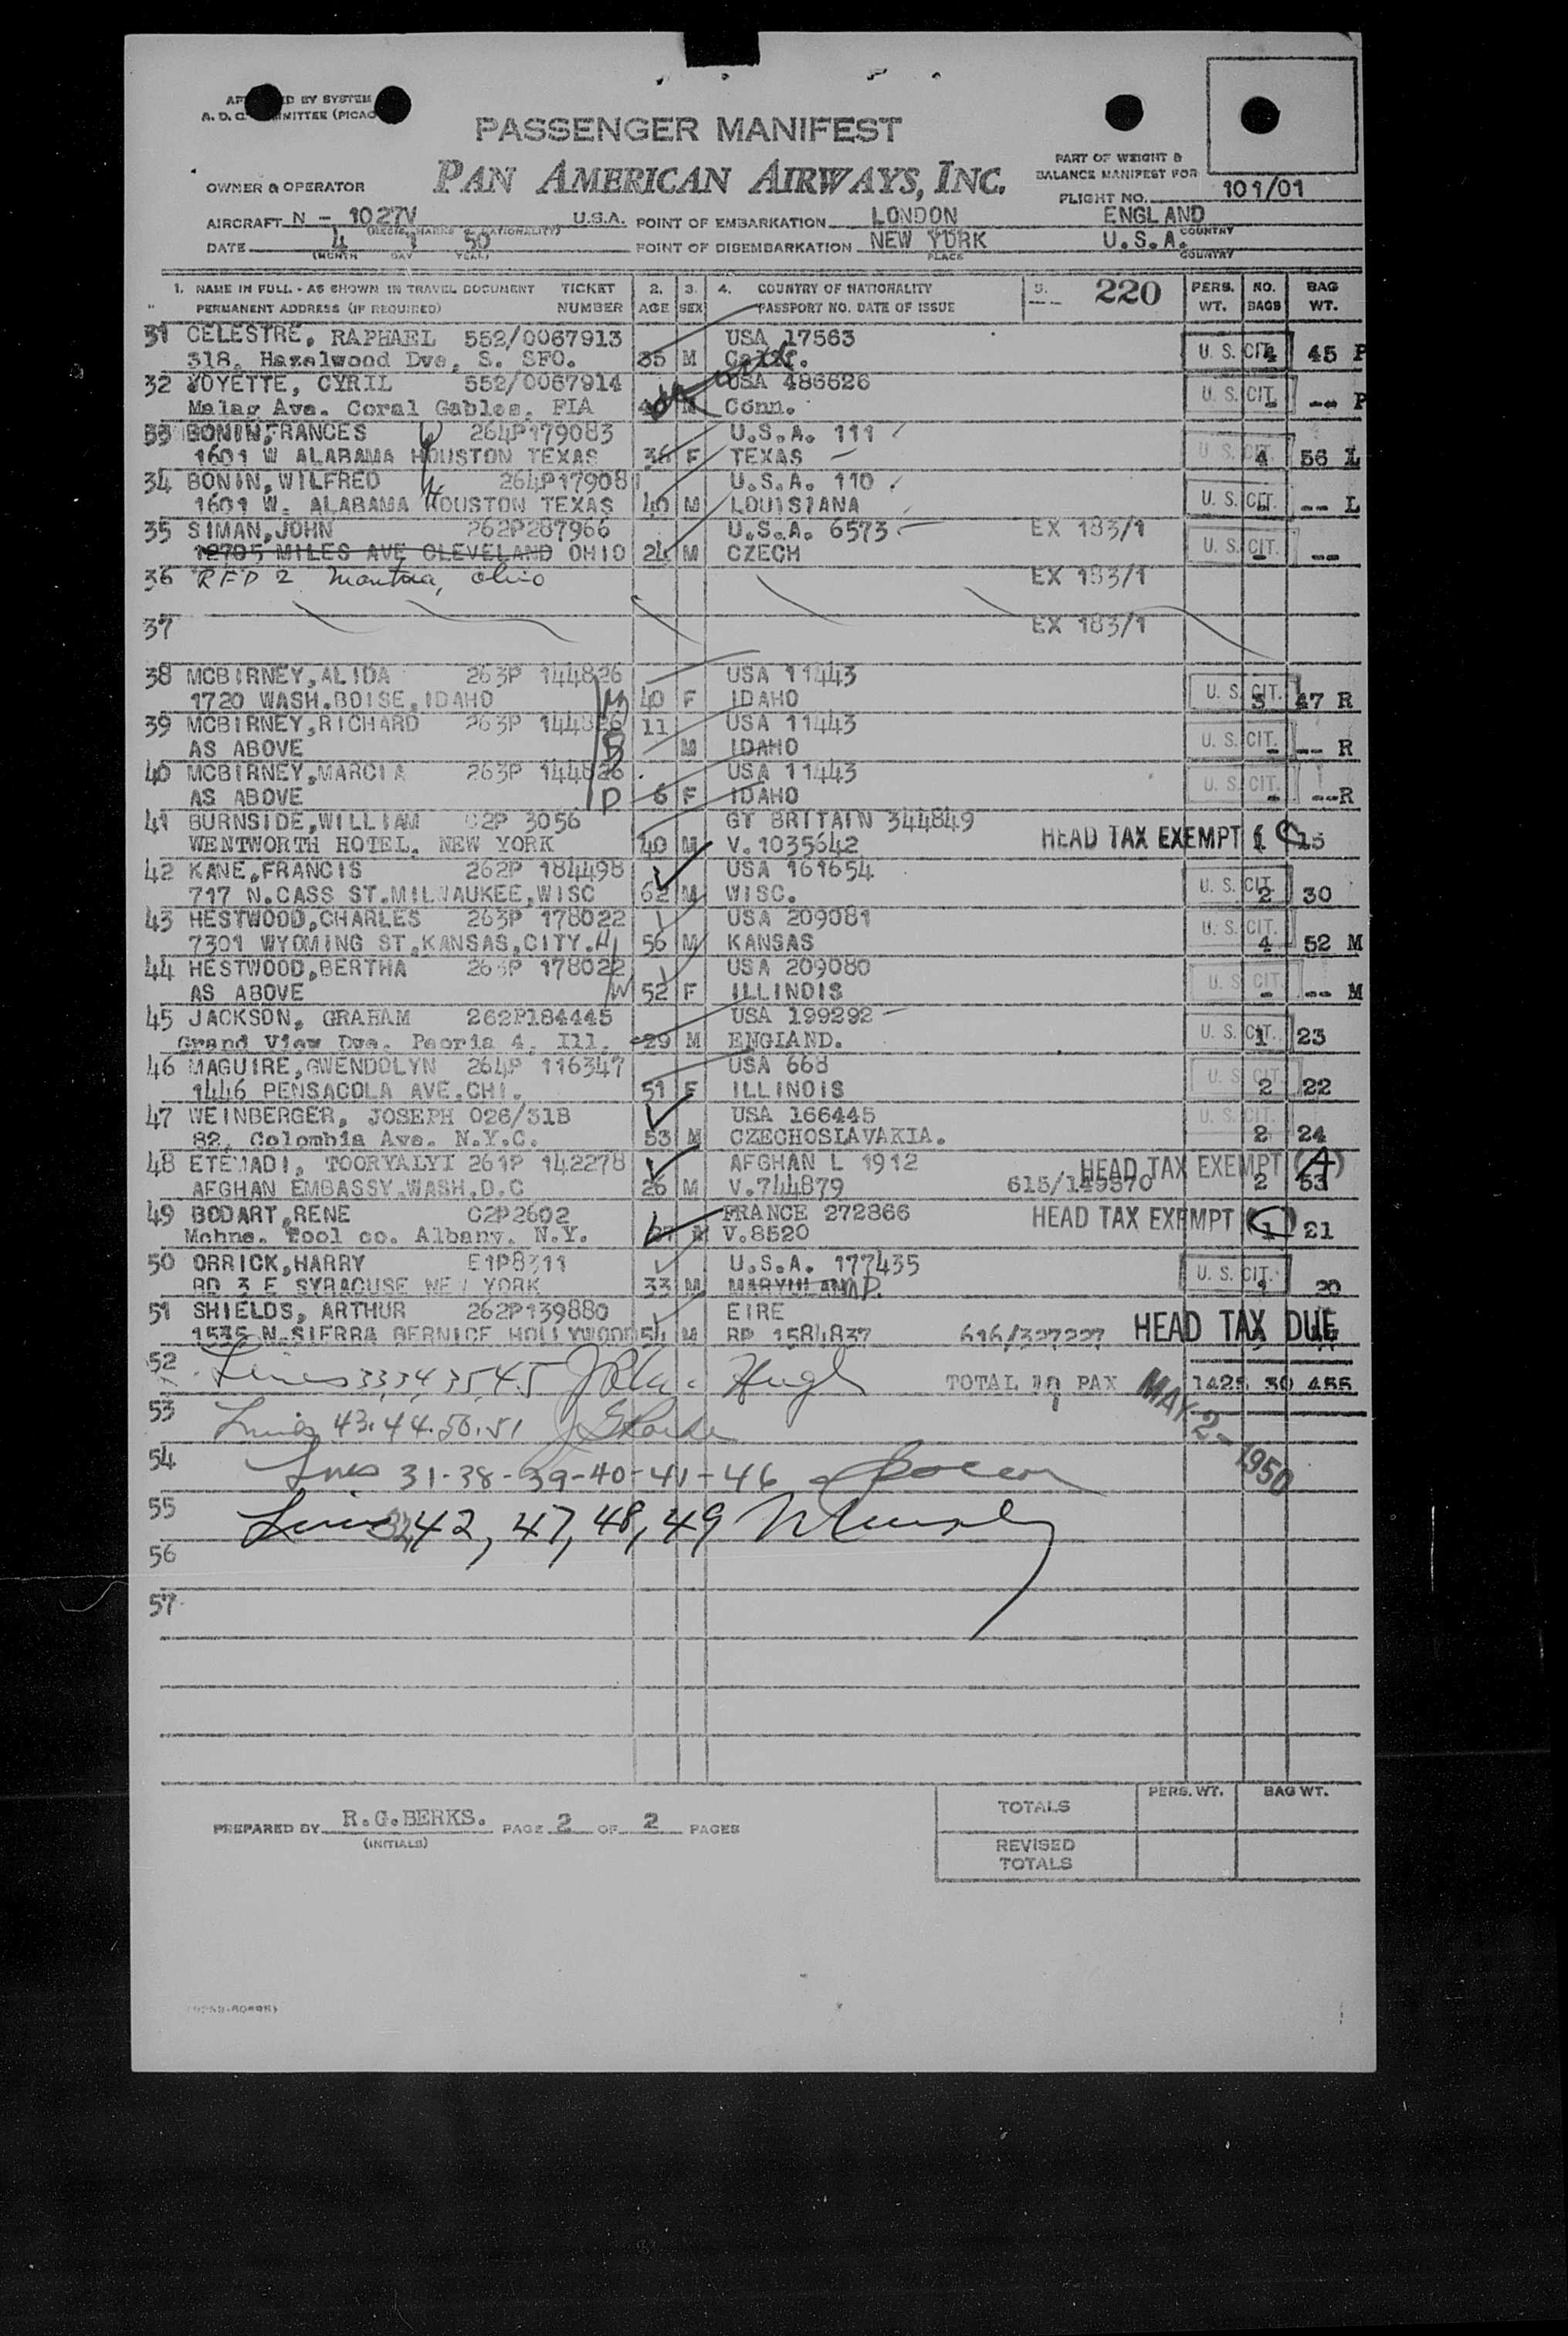 PASSENGER MANIFEST
PAN AMERICAN AIRWAYS, INC.
OWNER & OPERATOR
PART OF WEIGHT &
BALANCE MANIFEST FOR
FLIGHT NO. 101/01
AIRCRAFT N - 1027V U.S.A. POINT OF EMBARKATION LONDON ENGLAND
DATE 4 1 50 POINT OF DISEMBARKATION NEW YORK U.S.A.
(MONTH DAY YEAR) PLACE COUNTRY
1. NAME IN FULL - AS SHOWN IN TRAVEL DOCUMENT TICKET 2. 3. 4. COUNTRY OF NATIONALITY 5. 220 PERS. NO. BAG
PERMANENT ADDRESS (IF REQUIRED) NUMBER AGE SEX PASSPORT NO. DATE OF ISSUE WT. BAGS WT.
31 CELESTRE, RAPHAEL 552/0067913 USA 17563
318, Hazelwood Dve, S. SFO. 35 M Calif. U. S. CIT. 4 45 P
32 VOYETTE, CYRIL 552/0067914 USA 486626
Malag Ave. Coral Gables, FIA M Conn. U. S. CIT. - -- P
33 BONIN, FRANCES W 264P179083 U.S.A. 111
1601 W ALABAMA HOUSTON TEXAS 36 F TEXAS U. S. CIT. 4 56 L
34 BONIN, WILFRED H 264P17908 U.S.A. 110
1601 W. ALABAMA HOUSTON TEXAS 40 M LOUISIANA U. S. CIT. - -- L
35 SIMAN, JOHN 262P287966 U.S.A. 6573 EX 183/1
12705 MILES AVE CLEVELAND OHIO 24 M CZECH U. S. CIT. - --
36 RFD 2 Mantua, Ohio EX 183/1
37 EX 183/1
38 MCBIRNEY, ALIDA 263P 144826 USA 11443
1720 WASH. BOISE, IDAHO M 40 F IDAHO U. S. CIT. 3 47 R
39 MCBIRNEY, RICHARD 263P 144826 11 USA 11443
AS ABOVE B M IDAHO U. S. CIT. - -- R
40 MCBIRNEY, MARCIA 263P 144826 USA 11443
AS ABOVE D 6 F IDAHO U. S. CIT. - --R
41 BURNSIDE, WILLIAM C2P 3056 GT BRITAIN 344849
WENTWORTH HOTEL. NEW YORK 40 M V. 1035642 HEAD TAX EXEMPT (C) 1 15
42 KANE, FRANCIS 262P 184498 USA 161654
717 N. CASS ST. MILWAUKEE, WISC 62 M WISC. U. S. CIT. 2 30
43 HESTWOOD, CHARLES 263P 178022 USA 209081
7301 WYOMING ST, KANSAS, CITY. H 56 M KANSAS U. S. CIT. 4 52 M
44 HESTWOOD, BERTHA 263P 178022 USA 209080
AS ABOVE W 52 F ILLINOIS U. S. CIT. - -- M
45 JACKSON, GRAHAM 262P184445 USA 199292
Grand View Dve. Peoria 4, Ill. 29 M ENGIAND. U. S. CIT. 1 23
46 MAGUIRE, GWENDOLYN 264P 116347 USA 668
1446 PENSACOLA AVE. CHI. 51 F ILLINOIS U. S. CIT. 2 22
47 WEINBERGER, JOSEPH 026/318 USA 166445 U. S. CIT.
82, Colombia Ave. N.Y.C. 53 M CZECHOSIAVAKIA. 2 24
48 ETEMADI, TOORYALYI 261P 142278 AFGHAN L 1912 HEAD TAX EXEMPT (A)
AFGHAN EMBASSY, WASH, D.C 26 M V. 744879 615/149570 2 53
49 BODART, RENE C2P2602 FRANCE 272866 HEAD TAX EXEMPT (C)
Mchne. Tool co. Albany. N.Y. 37 M V. 8520 1 21
50 ORRICK, HARRY E1P8311 U.S.A. 177435
RD 3 E SYRACUSE NEW YORK 33 M MARYLAND. U. S. CIT. 1 20
51 SHIELDS, ARTHUR 262P139880 EIRE
1535 N. SIERRA BERNICE HOLLYWOOD 54 M RP 1584837 616/327227 HEAD TAX DUE
52 Lines 33 34 35 45 TOTAL PAX 1425 30 455
MAY 2 - 1950
53 Lines 43. 44. 50. 51
54 Lines 31-38-39-40-41-46
55 Lines 32, 42, 47, 48, 49
56
57
TOTALS PERS. WT. BAG WT.
PREPARED BY R.G. BERKS. PAGE 2 OF 2 PAGES
(INITIALS)
REVISED
TOTALS